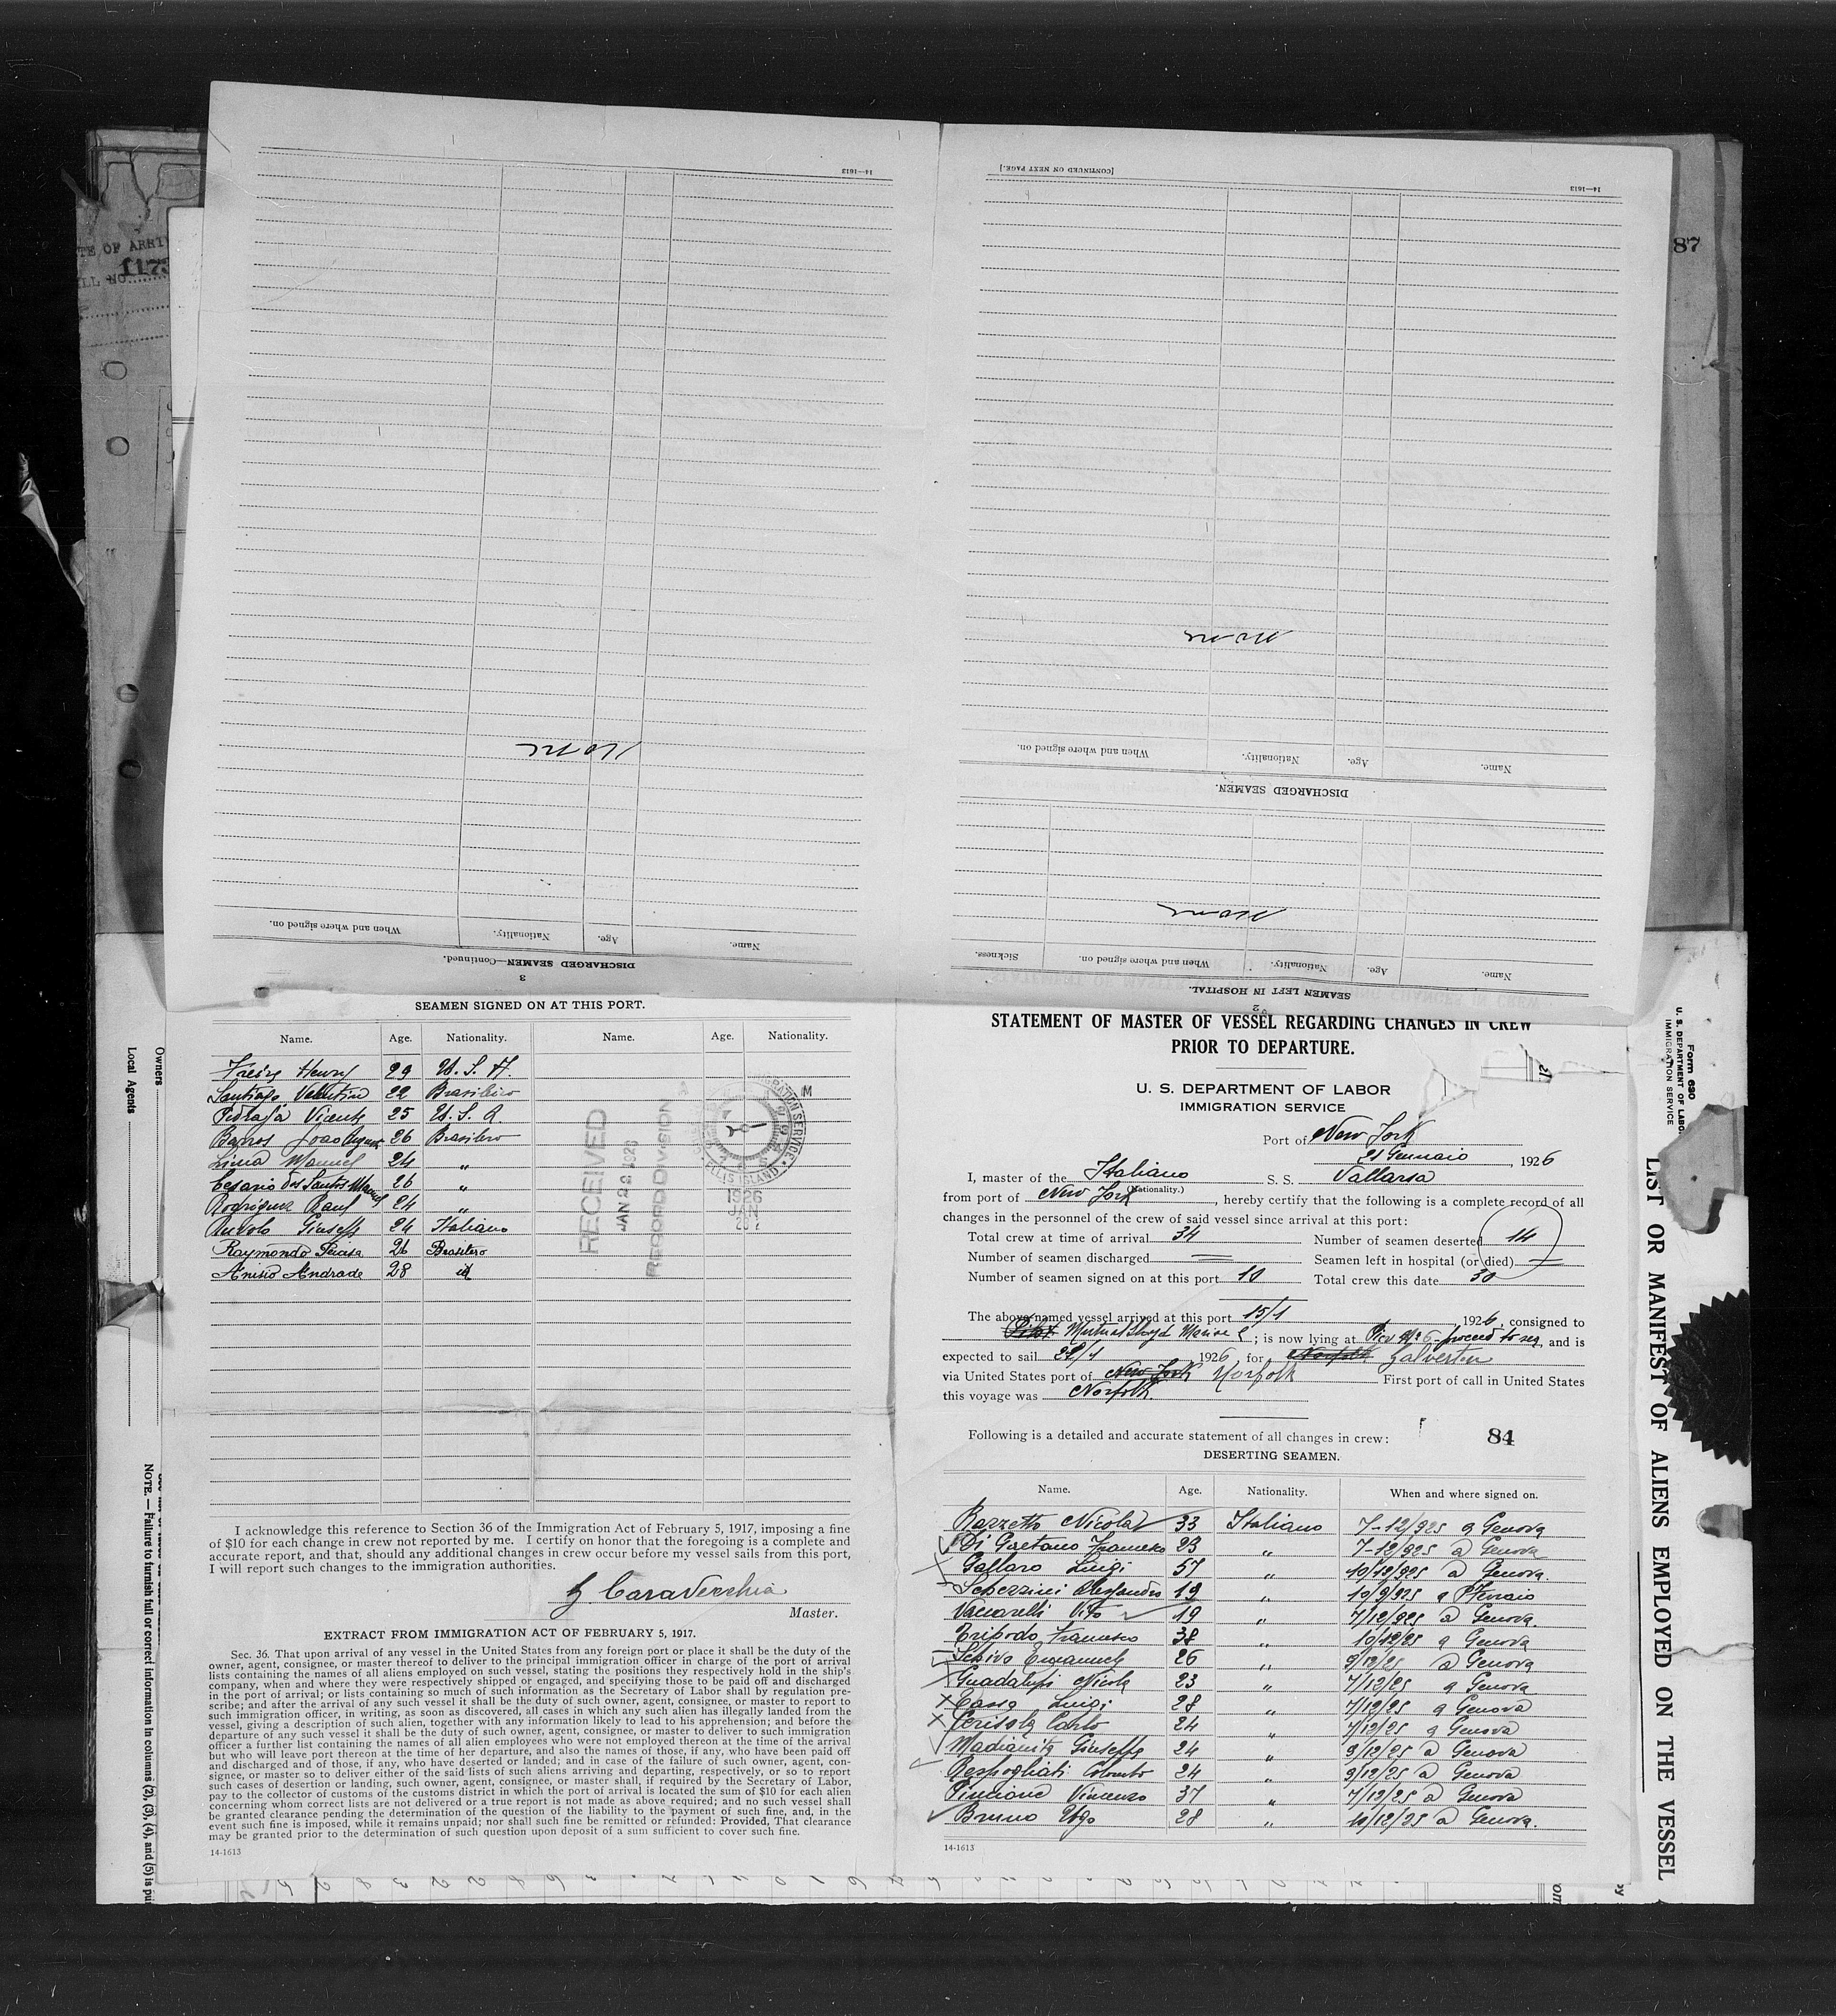 14—1613
[CONTINUED ON NEXT PAGE.]
14—1613
TE OF ARRI
LL NO. 1173
87
None
None
When and where signed on.
Nationality.
Age.
Name.
DISCHARGED SEAMEN.
None
When and where signed on.
Nationality.
Age.
Name.
DISCHARGED SEAMEN—Continued.
3
Sickness.
When and where signed on.
Nationality.
Age.
Name.
SEAMEN LEFT IN HOSPITAL.
2
SEAMEN SIGNED ON AT THIS PORT.
Name. Age. Nationality. Name. Age. Nationality.
Henry 29 U. S. A.
Santiago 22 Brasiliero
Vicente 25 U. S. A
Barros Joao 26 Brasilero
Lima Manuel 24 "
Cesario dos Santos Manuel 26 "
Rodriguez Raul 24 "
Giuseppe 24 Italiano
Raymondo 26 Brasilero
Anisio Andrade 28 id
RECEIVED
JAN 22 1926
RECORD DIVISION
IMMIGRATION SERVICE
ELLIS ISLAND
M
1926
JAN
I acknowledge this reference to Section 36 of the Immigration Act of February 5, 1917, imposing a fine
of $10 for each change in crew not reported by me. I certify on honor that the foregoing is a complete and
accurate report, and that, should any additional changes in crew occur before my vessel sails from this port,
I will report such changes to the immigration authorities.
G Caravecchia
Master.
EXTRACT FROM IMMIGRATION ACT OF FEBRUARY 5, 1917.
Sec. 36. That upon arrival of any vessel in the United States from any foreign port or place it shall be the duty of the
owner, agent, consignee, or master thereof to deliver to the principal immigration officer in charge of the port of arrival
lists containing the names of all aliens employed on such vessel, stating the positions they respectively hold in the ship's
company, when and where they were respectively shipped or engaged, and specifying those to be paid off and discharged
in the port of arrival; or lists containing so much of such information as the Secretary of Labor shall by regulation pre-
scribe; and after the arrival of any such vessel it shall be the duty of such owner, agent, consignee, or master to report to
such immigration officer, in writing, as soon as discovered, all cases in which any such alien has illegally landed from the
vessel, giving a description of such alien, together with any information likely to lead to his apprehension; and before the
departure of any such vessel it shall be the duty of such owner, agent, consignee, or master to deliver to such immigration
officer a further list containing the names of all alien employees who were not employed thereon at the time of the arrival
but who will leave port thereon at the time of her departure, and also the names of those, if any, who have been paid off
and discharged and of those, if any, who have deserted or landed; and in case of the failure of such owner, agent, con-
signee, or master so to deliver either of the said lists of such aliens arriving and departing, respectively, or so to report
such cases of desertion or landing, such owner, agent, consignee, or master shall, if required by the Secretary of Labor,
pay to the collector of customs of the customs district in which the port of arrival is located the sum of $10 for each alien
concerning whom correct lists are not delivered or a true report is not made as above required; and no such vessel shall
be granted clearance pending the determination of the question of the liability to the payment of such fine, and, in the
event such fine is imposed, while it remains unpaid; nor shall such fine be remitted or refunded: Provided, That clearance
may be granted prior to the determination of such question upon deposit of a sum sufficient to cover such fine.
14-1613
STATEMENT OF MASTER OF VESSEL REGARDING CHANGES IN CREW
PRIOR TO DEPARTURE.
U. S. DEPARTMENT OF LABOR
IMMIGRATION SERVICE
Port of New York
21 Gennaio, 1926
I, master of the Italiano S. S. Vallarsa
(Nationality.)
from port of New York, hereby certify that the following is a complete record of all
changes in the personnel of the crew of said vessel since arrival at this port:
Total crew at time of arrival 34 Number of seamen deserted 14
Number of seamen discharged = Seamen left in hospital (or died) —
Number of seamen signed on at this port 10 Total crew this date 30
The above named vessel arrived at this port 15/1, 1926, consigned to
; is now lying at Pier No 6 proceed to sea, and is
expected to sail 22/1 1926, for Norfolk Galveston
via United States port of New York Norfolk First port of call in United States
this voyage was Norfolk.
Following is a detailed and accurate statement of all changes in crew:
84
DESERTING SEAMEN.
Name. Age. Nationality. When and where signed on.
Bazzetta Nicola 33 Italiano 7-12/925 a Genova
Di Gaetano Francesco 23 " 7-12/925 a Genova
Gallaro Luigi 57 " 10/12/925 a Genova.
Alessandro 19 " 19/9/925 a
Vaccarelli Vito 19 " 7/12/925 a Genova.
Tripodo Francesco 38 " 10/12/25 a Genova
Schivo Emanuele 26 " 9/12/25 a Genova
Guadalupi Nicola 23 " 7/12/25 a Genova
Cassa Luigi 28 " 7/12/25 a Genova
Cerisola Carlo 24 " 7/12/25 a Genova
Giuseppe 24 " 9/12/25 a Genova
Respogliati Colombo 24 " 9/12/25 a Genova
Vincenzo 37 " 7/12/25 a Genova
Bruno Ugo 28 " 10/12/25 a Genova.
14-1613
Owners
Local Agents
NOTE.—Failure to turnish full or correct information in columns (2), (3), (4), and (5) is pu
Form 690
U. S. DEPARTMENT OF LABOR
IMMIGRATION SERVICE
LIST OR MANIFEST OF ALIENS EMPLOYED ON THE VESSEL